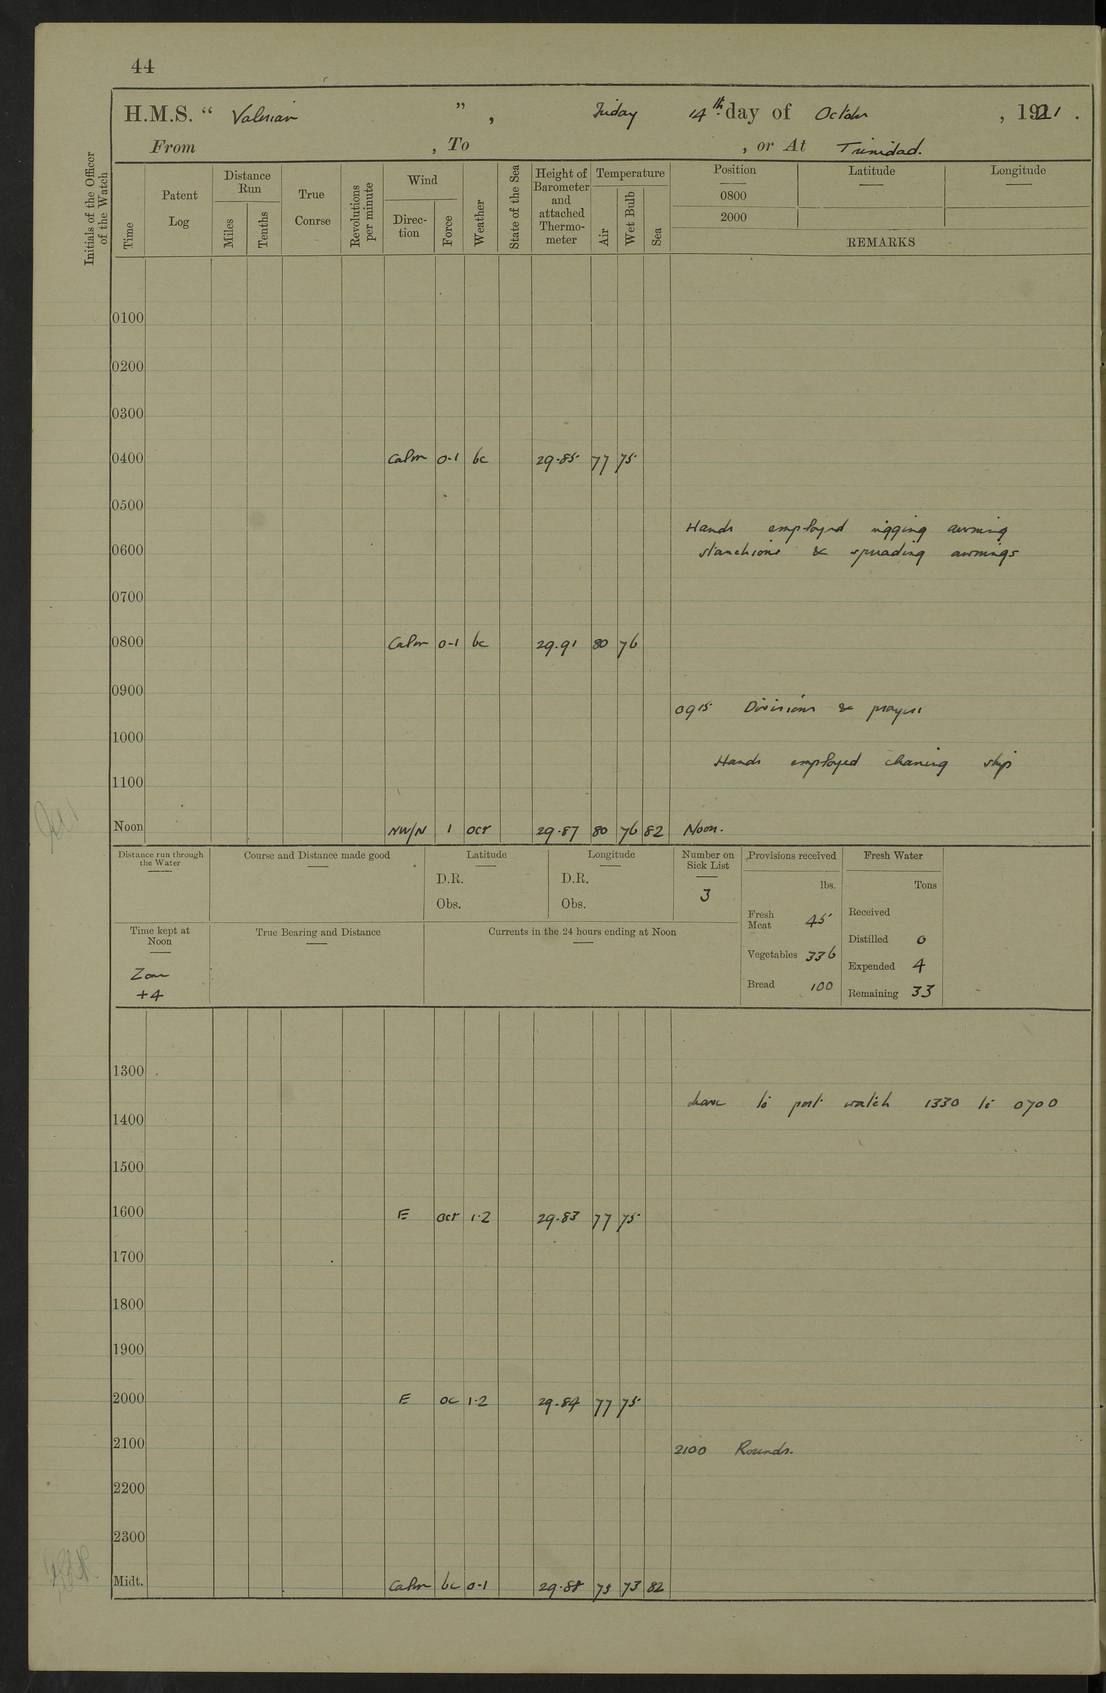 44
H.M.S. “ Valerian ” , Friday 14th day of October , 1921 .
From , To , or At Trinidad.
Initials of the Officer of the Watch
Time
Patent Log
Distance Run
Miles
Tenths
True Conrse
Revolutions per minute
Wind
Direc-tion
Force
Weather
State of the Sea
Height of Barometer and attached Thermo-meter
Temperature
Air
Wet Bulb
Sea
Position Latitude Longitude
0800
2000
REMARKS
0100
0200
0300
0400 Calm 0-1 bc 29.85 77 75
0500
Hands employed rigging awning
0600 stanchions & spreading awnings
0700
0800 Calm 0-1 bc 29.91 80 76
0900
0915 Divisions & prayers
1000
Hands employed cleaning ship
1100
Noon NW/N 1 ocr 29.87 80 76 82 Noon.
Distance run through the Water
Course and Distance made good
Latitude
D.R.
Obs.
Longitude
D.R.
Obs.
Number on Sick List
3
Provisions received
lbs.
Fresh Meat 45
Vegetables 336
Bread 100
Fresh Water
Tons
Received
Distilled 0
Expended 4
Remaining 33
Time kept at Noon
Zone
+4
True Bearing and Distance
Currents in the 24 hours ending at Noon
1300
Leave to port watch 1330 to 0700
1400
1500
1600 E ocr 1-2 29.83 77 75
1700
1800
1900
2000 E oc 1-2 29.84 77 75
2100 2100 Rounds.
2200
2300
Midt. Calm bc 0-1 29.88 75 73 82